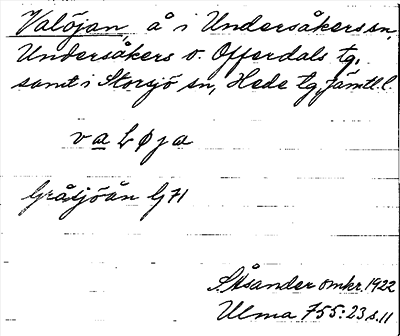 Valöjan, å i Undersåkers sn,
Undersåkers o. Offerdals tg.
samt i Storsjö sn, Hede tg, Jämtl. l.
v a L ø j a
Gråsjöån G 71
Åsander omkr. 1922
Ulma 755:23 s. 11